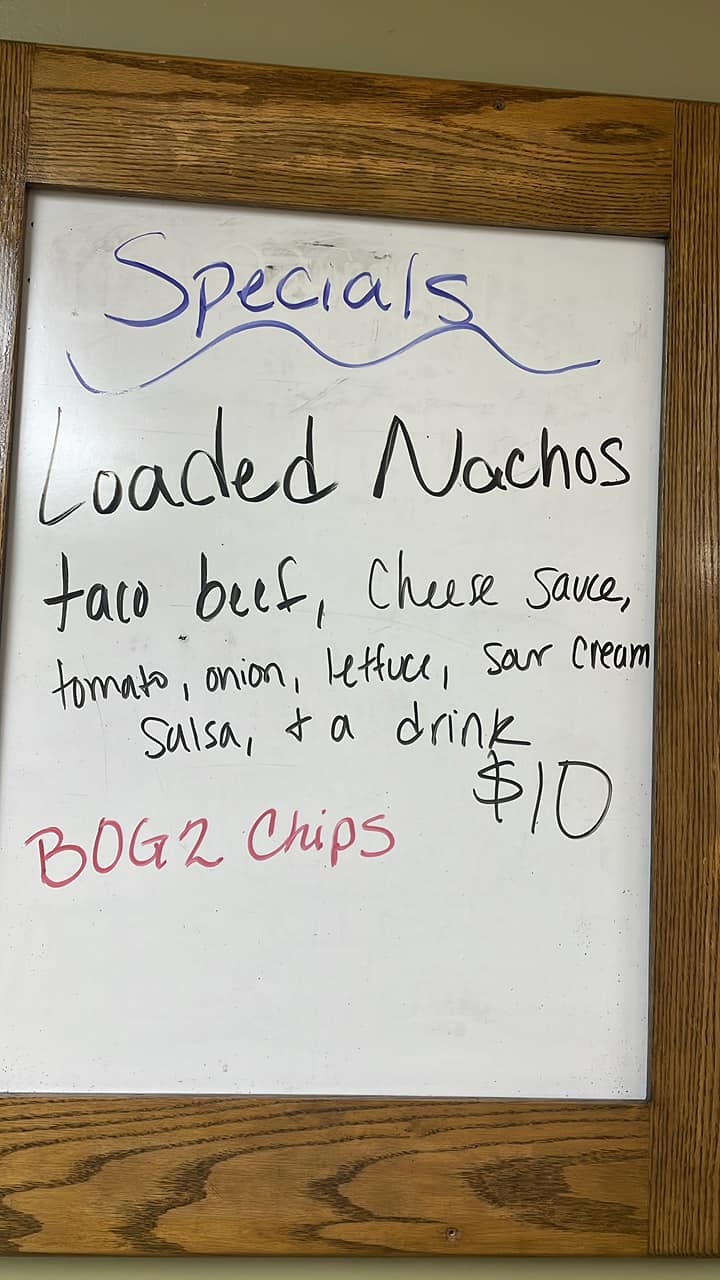 Specials
Loaded Nachos
taco beef, Cheese Sauce,
tomato, onion, lettuce, Sour Cream
Salsa, + a drink
$10
BOG2 Chips